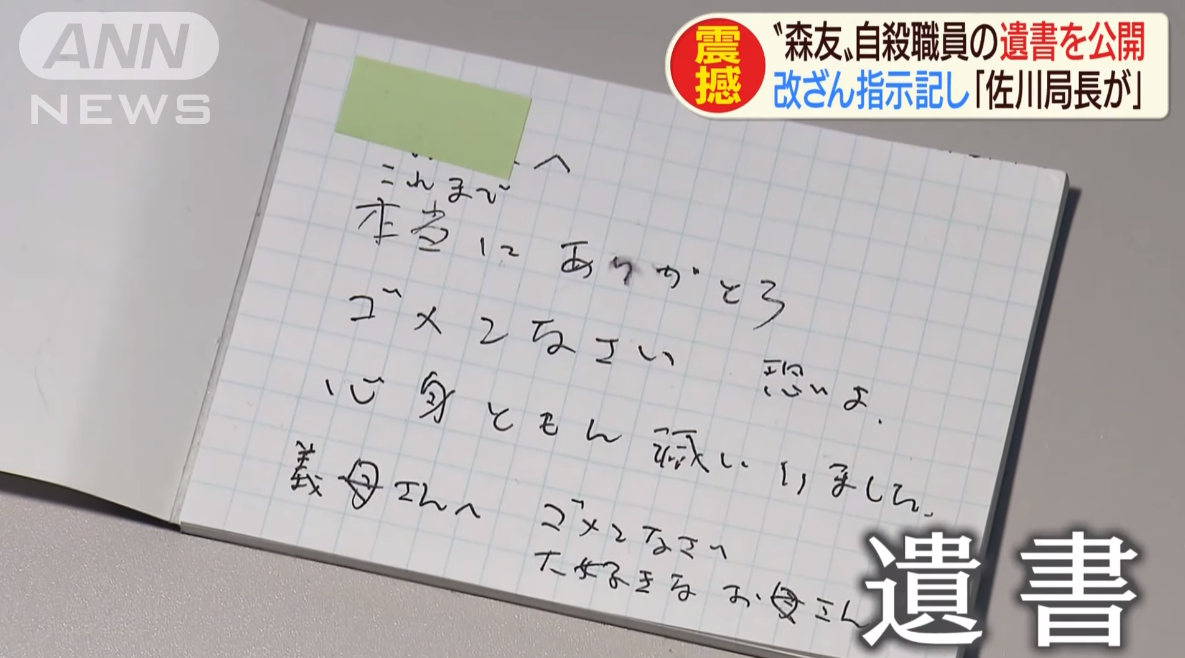 ANN
NEWS
震撼
〝森友〟自殺職員の遺書を公開
改ざん指示記し「佐川局長が」
へ
これまで
本当に ありがとう
ゴメンなさい 恐いよ、
心身ともに 滅いりました。
義母さんへ ゴメンなさい
大好きな お母さん
遺書